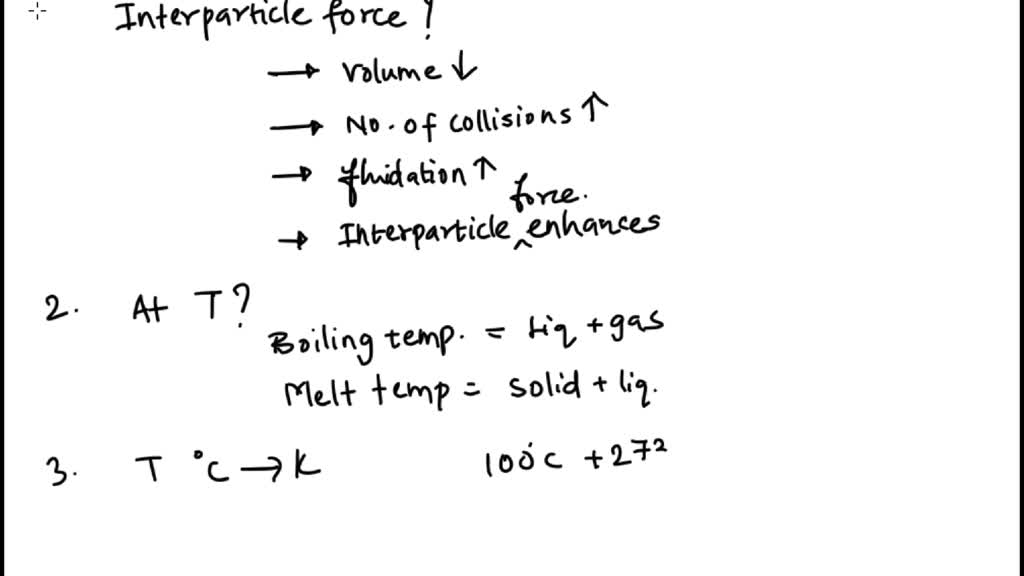 Interparticle force?
→ volume ↓
→ No. of collisions ↑
→ fluidation ↑
→ Interparticle ^ force. enhances
2. At T?
Boiling temp. = Liq + gas
Melt temp = solid + liq.
3. T °C → K 100°C + 272